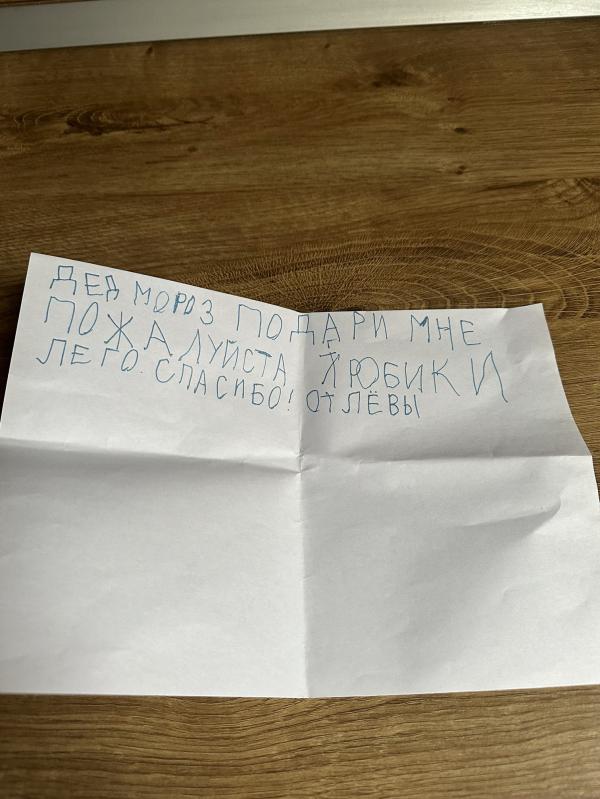 ДЕД МОРОЗ ПОДАРИ МНЕ
ПОЖАЛУЙСТА КЮБИКИ
ЛЕГО. СПАСИБО! ОТ ЛЁВЫ